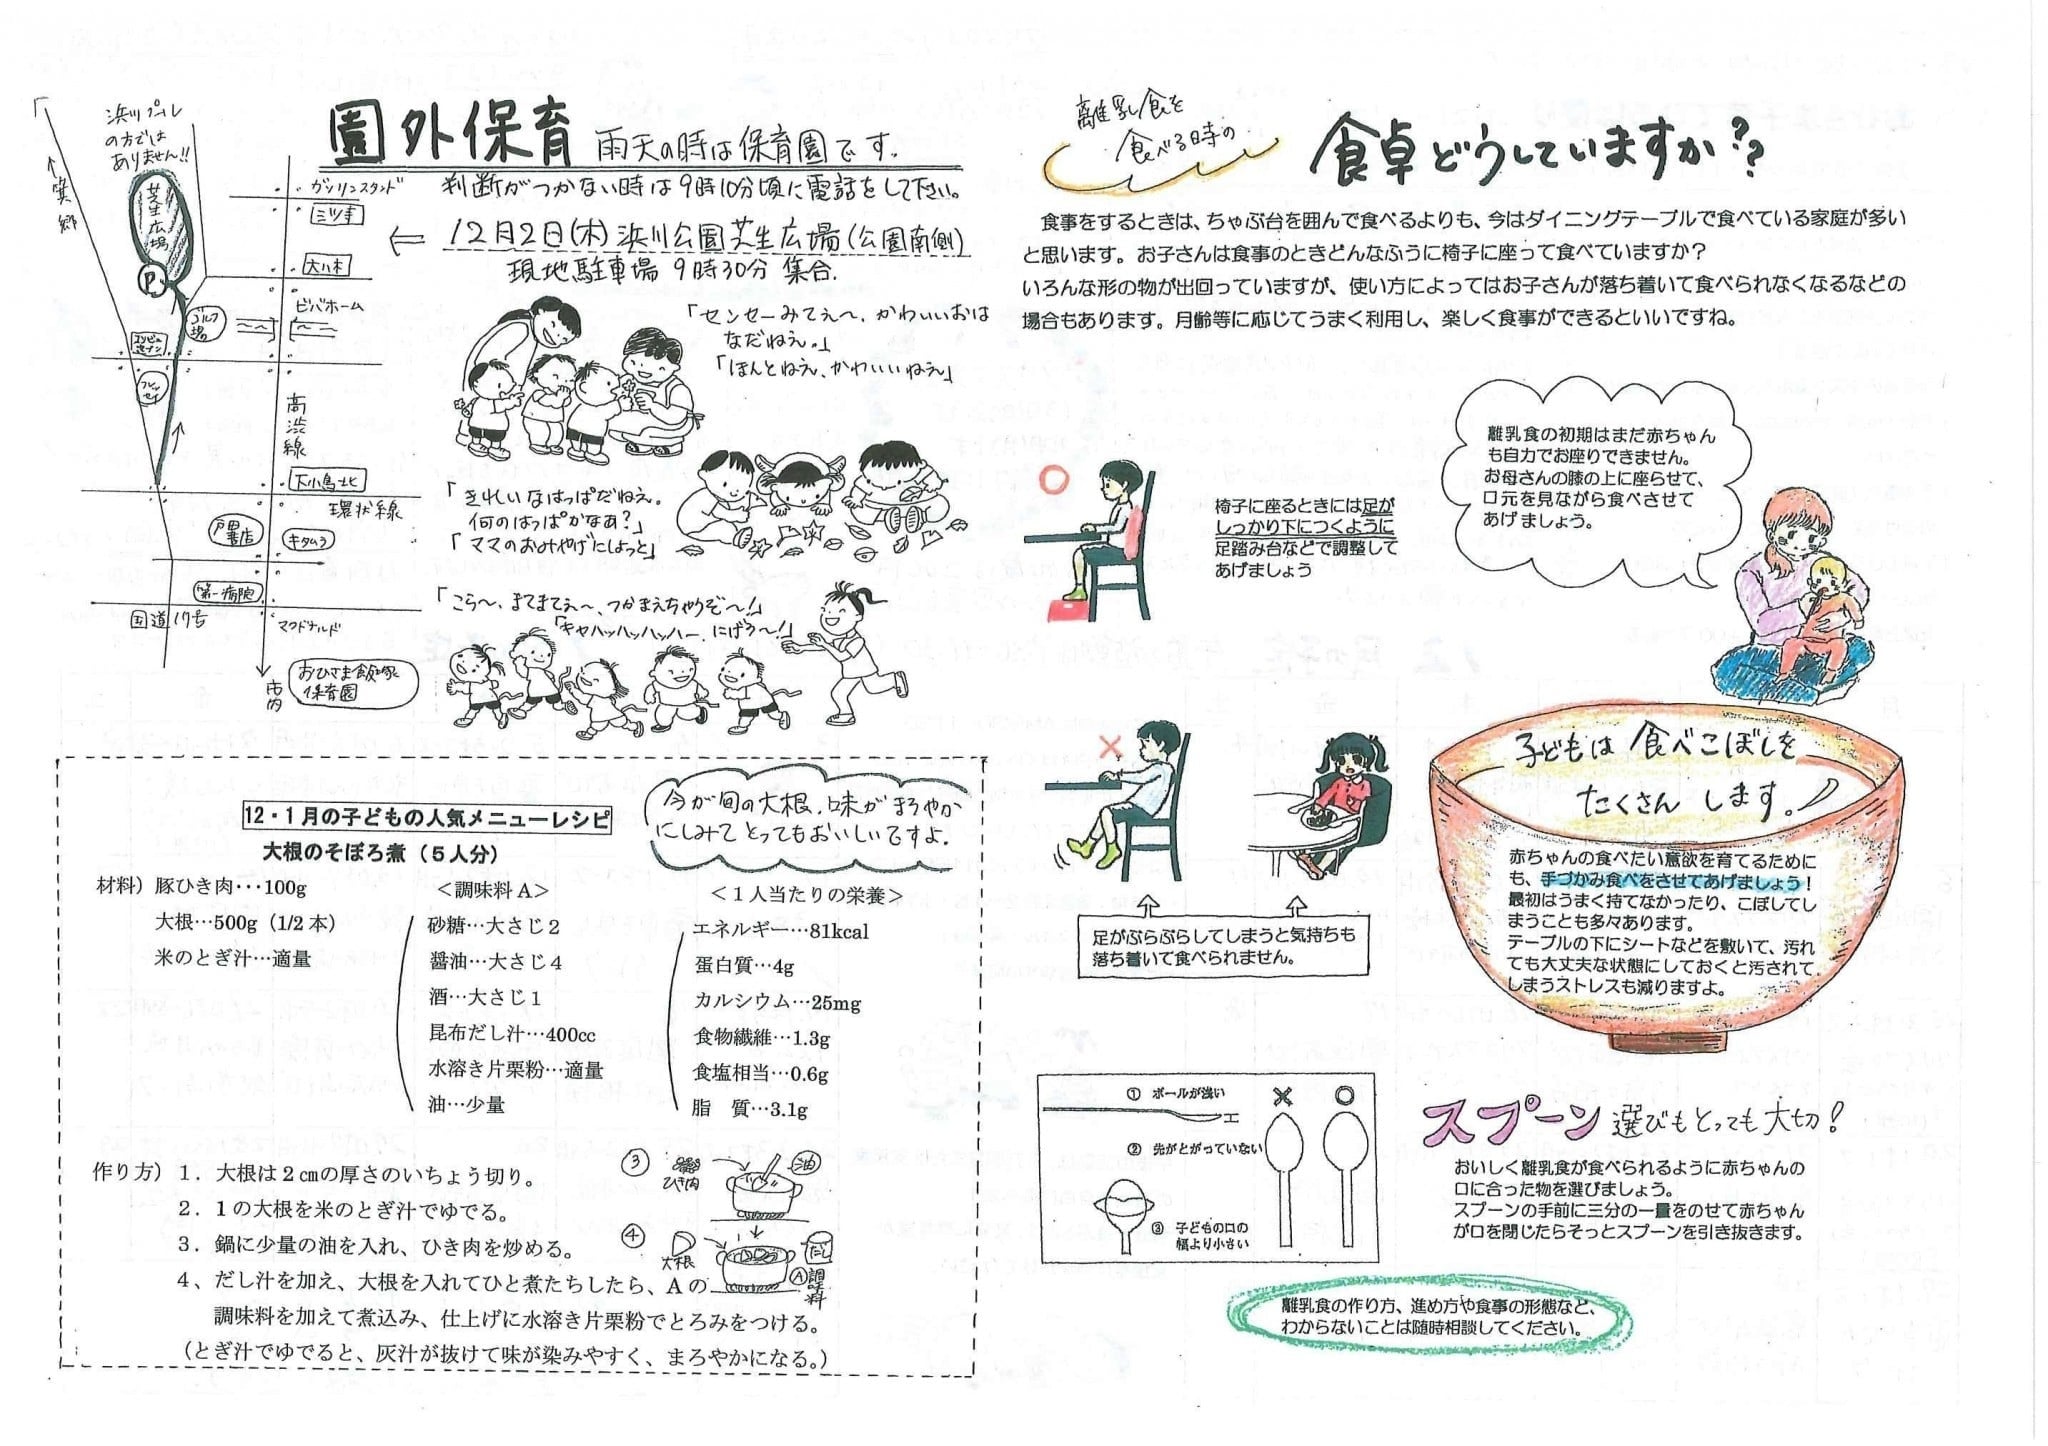 園外保育 雨天の時は保育園です。
判断がつかない時は9時10分頃に電話をして下さい。
← 12月2日(木) 浜川公園芝生広場(公園南側)
現地駐車場 9時30分 集合.
浜川プール
の方では
ありません!!
芝生広場
P
↑箕郷
ガソリンスタンド
三ツ寺
大八木
ビバホーム
ゴルフ場
セブン
フレッセイ
高渋線
下小鳥北
環状線
戸田書店
キタムラ
第一病院
国道17号
マクドナルド
市内
おひさま飯塚
保育園
「センセーみてぇ〜、かわいいおは
なだねぇ。」
「ほんとねぇ、かわいいねぇ」
「きれいなはっぱだねぇ。
何のはっぱかなぁ?」
「ママのおみやげにしよっと」
「こら〜、まてまてぇ〜、つかまえちゃうぞ〜!」
「キャハッハッハッハー、にげろ〜!」
12・1月の子どもの人気メニューレシピ
大根のそぼろ煮(5人分)
今が旬の大根、味がまろやか
にしみて とってもおいしいですよ.
材料)豚ひき肉･･･100g
大根…500g(1/2本)
米のとぎ汁…適量
<調味料A>
砂糖…大さじ2
醤油…大さじ4
酒…大さじ1
昆布だし汁…400cc
水溶き片栗粉…適量
油…少量
<1人当たりの栄養>
エネルギー…81kcal
蛋白質…4g
カルシウム…25mg
食物繊維…1.3g
食塩相当…0.6g
脂 質…3.1g
作り方)1.大根は2㎝の厚さのいちょう切り。
2.1の大根を米のとぎ汁でゆでる。
3.鍋に少量の油を入れ、ひき肉を炒める。
4、だし汁を加え、大根を入れてひと煮たちしたら、Aの
調味料を加えて煮込み、仕上げに水溶き片栗粉でとろみをつける。
(とぎ汁でゆでると、灰汁が抜けて味が染みやすく、まろやかになる。)
③ ひき肉 油
④ 大根 だし
Ⓐ調味料
離乳食を
食べる時の
食卓どうしていますか??
食事をするときは、ちゃぶ台を囲んで食べるよりも、今はダイニングテーブルで食べている家庭が多い
と思います。お子さんは食事のときどんなふうに椅子に座って食べていますか?
いろんな形の物が出回っていますが、使い方によってはお子さんが落ち着いて食べられなくなるなどの
場合もあります。月齢等に応じてうまく利用し、楽しく食事ができるといいですね。
椅子に座るときには足が
しっかり下につくように
足踏み台などで調整して
あげましょう
離乳食の初期はまだ赤ちゃん
も自力でお座りできません。
お母さんの膝の上に座らせて、
口元を見ながら食べさせて
あげましょう。
足がぶらぶらしてしまうと気持ちも
落ち着いて食べられません。
子どもは 食べこぼしを
たくさん します。
赤ちゃんの食べたい意欲を育てるために
も、手づかみ食べをさせてあげましょう!
最初はうまく持てなかったり、こぼしてし
まうことも多々あります。
テーブルの下にシートなどを敷いて、汚れ
ても大丈夫な状態にしておくと汚されて
しまうストレスも減りますよ。
① ボールが浅い
② 先がとがっていない
③ 子どもの口の
幅より小さい
スプーン 選びもとっても大切!
おいしく離乳食が食べられるように赤ちゃんの
口に合った物を選びましょう。
スプーンの手前に三分の一量をのせて赤ちゃん
が口を閉じたらそっとスプーンを引き抜きます。
離乳食の作り方、進め方や食事の形態など、
わからないことは随時相談してください。